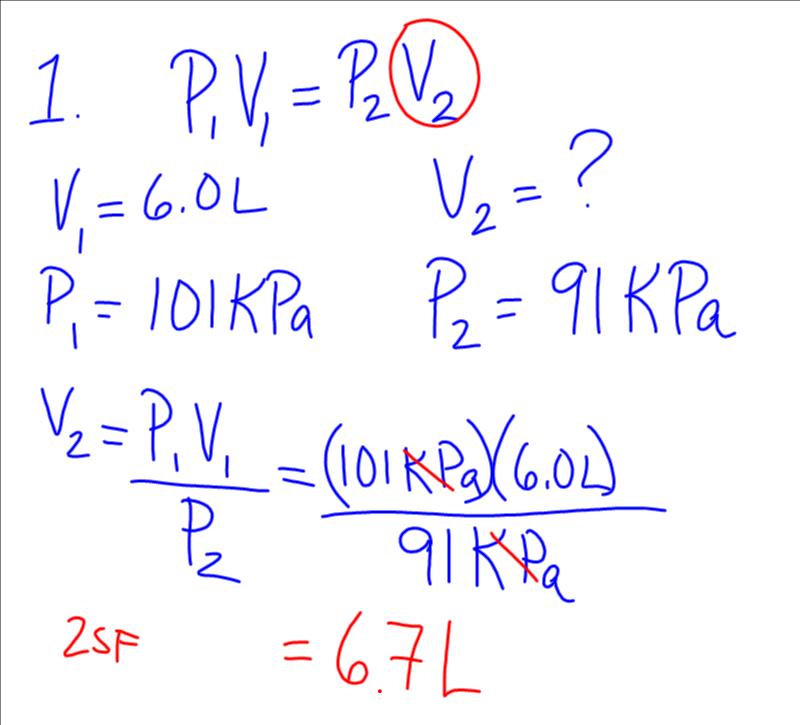 1. P₁V₁ = P₂V₂
V₁ = 6.0L V₂ = ?
P₁ = 101KPa P₂ = 91KPa
V₂ = P₁V₁ / P₂ = (101KPa)(6.0L) / 91KPa
2SF = 6.7L